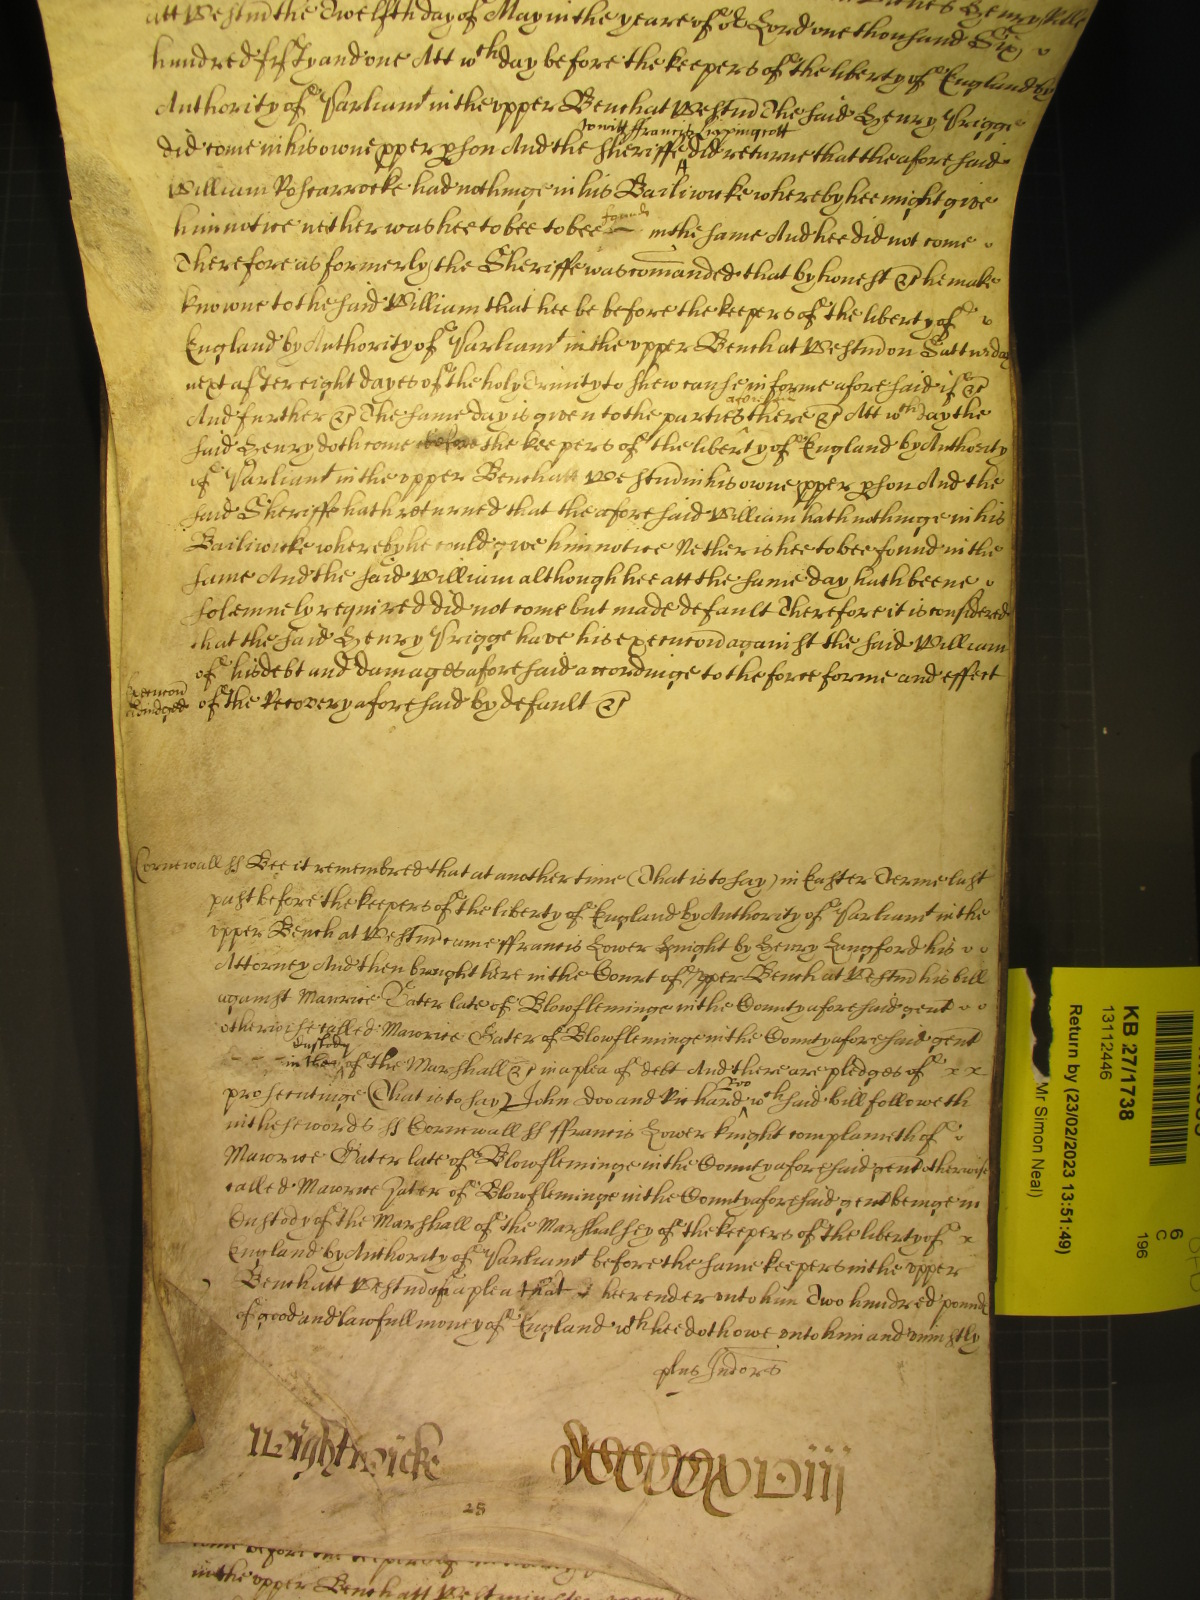 att Westm the Twelfth day of May in the yeare of or Lord one thousand Six
hundred fifty and one Att wch day before the keepers of the liberty of England by
Authority of Parliamt in the upper Bench at Westm The said Henry Prigge
to witt ffrancis Lippingcott
did come in his owne pper pson And the Sheriffe did returne that the aforesaid
William Roscarrocke had nothinge in his Bailiwicke whereby hee might give
him notice nether was hee to bee to bee found in the same And hee did not come
Therefore as formerly the Sheriffe was comanded that by honest &c he make
knowne to the said William that hee be before the keepers of the liberty of
England by Authority of Parliamt in the upper Bench at Westm on Satturday
next after eight dayes of the holy Trinity to shew cause in forme aforesaid if &c
And further &c The same day is given to the parties there &c Att wch day the
said Henry doth come before the keepers of the liberty of England by Authority
of Parliamt in the upper Bench att Westm in his owne pper pson And the
said Sheriffe hath returned that the aforesaid William hath nothinge in his
Bailiwicke whereby he could give him notice Nether is hee to bee found in the
same And the said William although hee att the same day hath beene
solemnely required did not come but made default Therefore it is considered
that the said Henry Prigge have his execucon against the said William
of his debt and damages aforesaid accordinge to the force forme and effect
Execucon
adiudged
of the Recovery aforesaid by default &c
Cornewall ss Bee it remembred that at another time (That is to say) in Easter Terme last
past before the keepers of the liberty of England by Authority of Parliamt in the
upper Bench at Westm came ffrancis Lower knight by Henry Langford his
Attorney And then brought here in the Court of upper Bench at Westm his bill
against Maurice Gater late of Blowfleminge in the County aforesaid gent
otherwise called Maurice Gater of Blowfleminge in the County aforesaid gent
custody
in they of the Marshall &c in a plea of debt And there are pledges of x x
prosecutinge (That is to say) John Doo and Richard Roo wch said bill followeth
in these words ss Cornewall ss ffrancis Lower knight complaineth of
Maurice Gater late of Blowfleminge in the County aforesaid gent otherwise
called Maurice Gater of Blowfleminge in the County aforesaid gent beinge in
Custody of the Marshall of the Marshalsey of the keepers of the liberty of x
England by Authority of Parliamt before the same keepers in the upper
Bench att Westm of a plea that hee render unto him Two hundred pounds
of good and lawfull money of England wch hee doth owe unto him and uniustly
plus Indors
Wightwicke
28
in the upper Bench att Westminster
KB 27/1738
13112446
Return by (23/02/2023 13:51:49)
Mr Simon Neal)
6
C
196